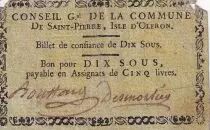 CONSEIL G.al DE LA COMMUNE
DE SAINT-PIERRE, ISLE D'OLERON.
Billet de confiance de DIX SOUS,
Bon pour DIX SOUS,
payable en Assignats de CINQ livres.
Desmortiers